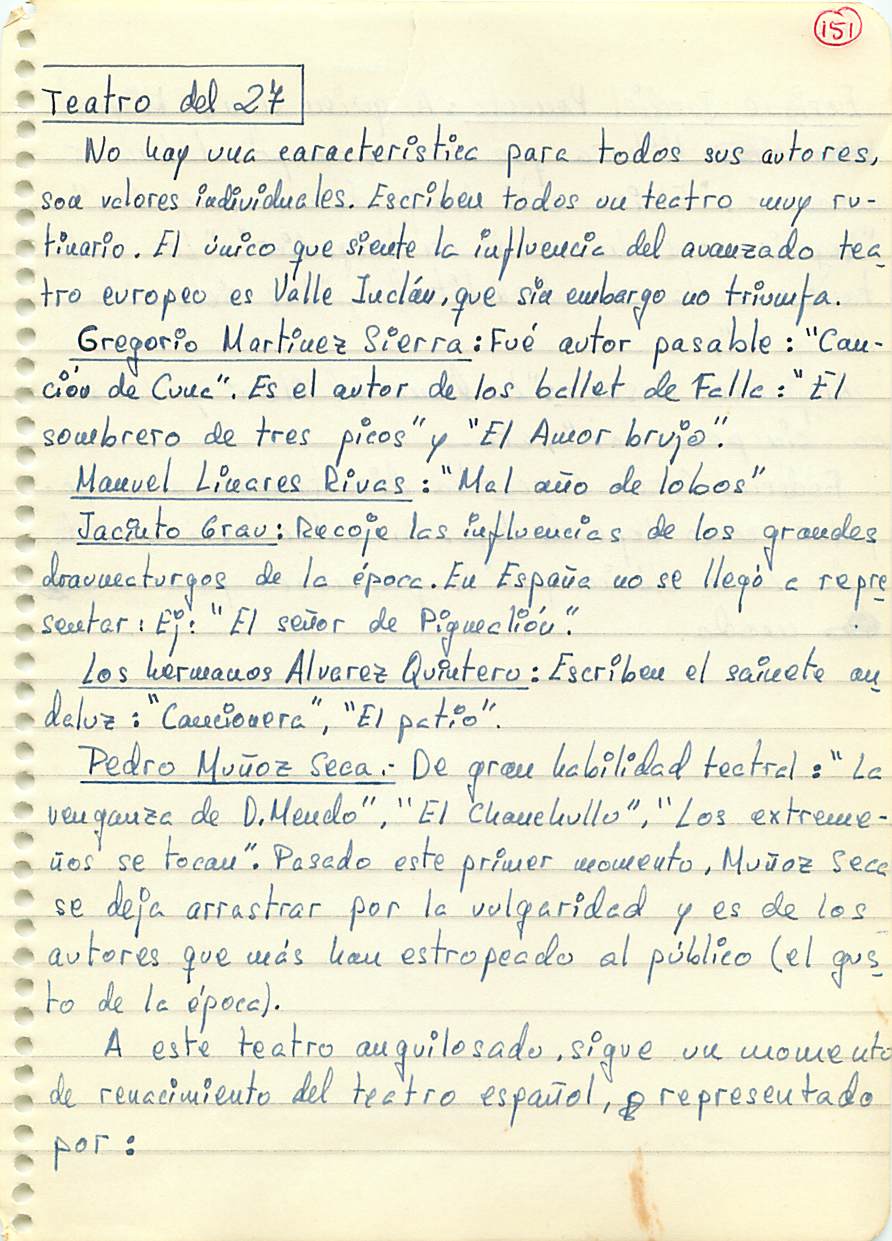 151
Teatro del 27
No hay una característica para todos sus autores,
son valores individuales. Escriben todos un teatro muy ru-
tinario. El único que siente la influencia del avanzado tea
tro europeo es Valle Inclán, que sin embargo no triumfa.
Gregorio Martinez Sierra: Fué autor pasable: "Can-
ción de Cuna". Es el autor de los ballet de Falla: "El
sombrero de tres picos" y "El Amor brujo".
Manuel Linares Rivas: "Mal año de lobos"
Jacinto Grau: Recoje las influencias de los grandes
dramaturgos de la época. En España no se llegó a repre
sentar: Ej: "El señor de Pigmalión".
Los hermanos Alvarez Quintero: Escriben el sainete an
daluz: "Cancionera", "El patio".
Pedro Muñoz Seca.- De gran habilidad teatral: "La
venganza de D. Mendo", "El Chanchullo", "Los extreme-
ños se tocan". Pasado este primer momento, Muñoz Seca
se deja arrastrar por la vulgaridad y es de los
autores que más han estropeado al público (el gus
to de la época).
A este teatro anguilosado, sigue un momento
de renacimiento del teatro español, representado
por: